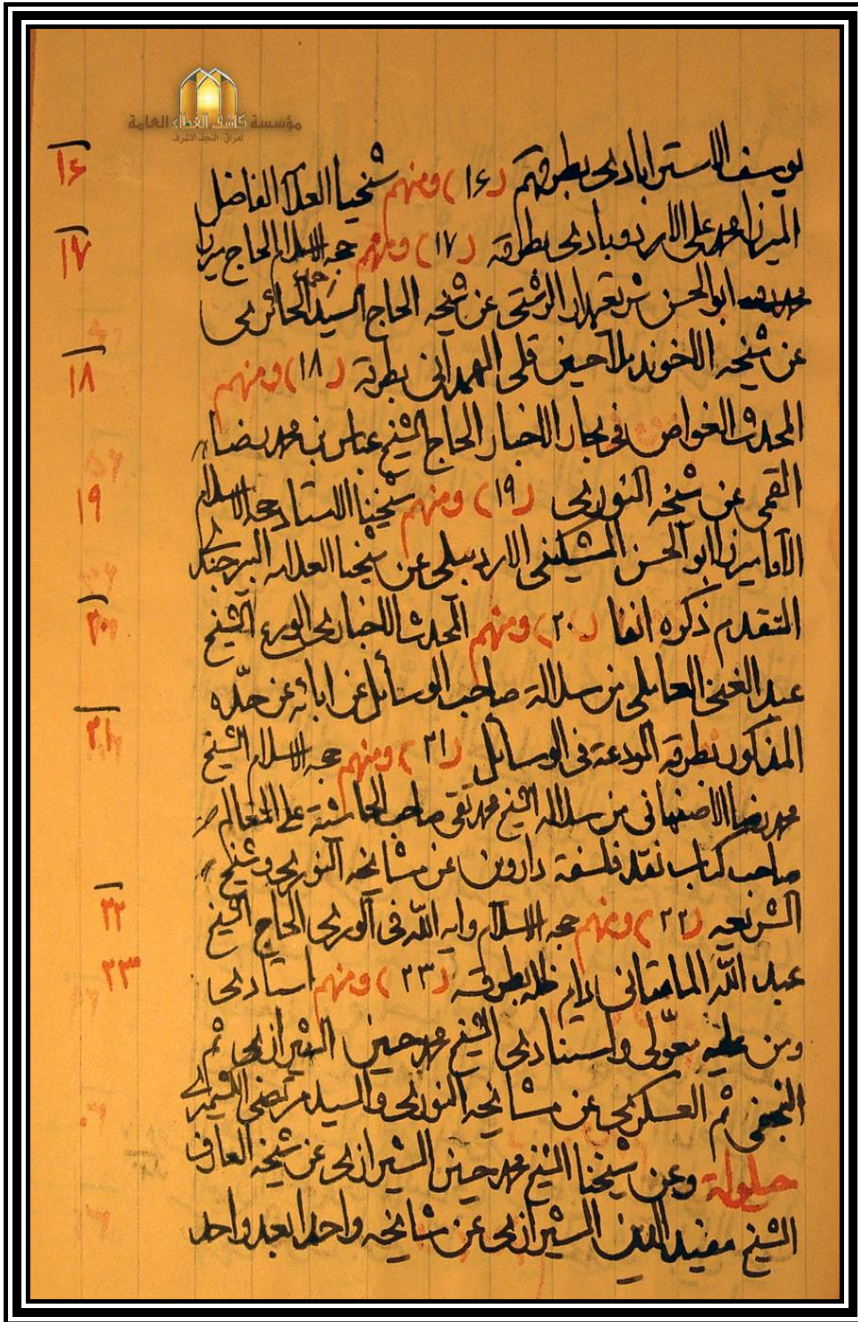 مؤسسة كاشف الغطاء العامة
العراق - النجف الاشرف
يوسف الاسترابادى بطرقهم (١٦) ومنهم شيخنا العلآ الفاضل
١٦
الميرزا محمد على الاردوبادى بطرقه (١٧) ومنهم حجه الاسلام الحاج ميرزا
١٧
ابوالحسن شريعتمدار الرشتى عن شيخه الحاج السيد الحائرى
عن شيخه الاخوند ملا حسين قلى الهمدانى بطرقه (١٨) ومنهم
١٨
المحدث الغواص فى بحار الاخبار الحاج الشيخ عباس بن محمد رضا
القمى عن شيخه النورى (١٩) ومنهم شيخنا الاستاد حجه الاسلام
١٩
الآقا ميرزا ابو الحسن المشكينى الاردبيلى عن شيخنا العلامه
المتقدم ذكره انفا (٢٠) ومنهم المحدث الاخبارى الورع الشيخ
٢٠
عبد الغنى العاملى من سلالة صاحب الوسائل عن ابائه عن جدّه
المذكور بطرقه المودعة فى الوسائل (٢١) ومنهم حجه الاسلام الشيخ
٢١
محمد رضا الاصفهانى من سلاله الشيخ محمد تقى صاحب الحاشية على المعالم
صاحب كتاب نقد فلسفة داروين عن مشايخه النورى وشيخ
الشريعه (٢٢) ومنهم حجه الاسلآم وايه اللّه فى الورى الحاج الشيخ
٢٢
عبد اللّه المامقانى دام ظله بطرقه (٢٣) ومنهم استادى
٢٣
ومن عليه معوّلى واستنادى الشيخ محمد حسين الشيرازى ثم
النجفى ثم العسكرى عن مشايخه النورى والسيد مرتضى الكشميرى
حيلولة وعن شيخنا الشيخ محمد حسين الشيرازى عن شيخه العارف
الشيخ مفيد الدين الشيرازى عن مشايخه واحدا بعد واحد